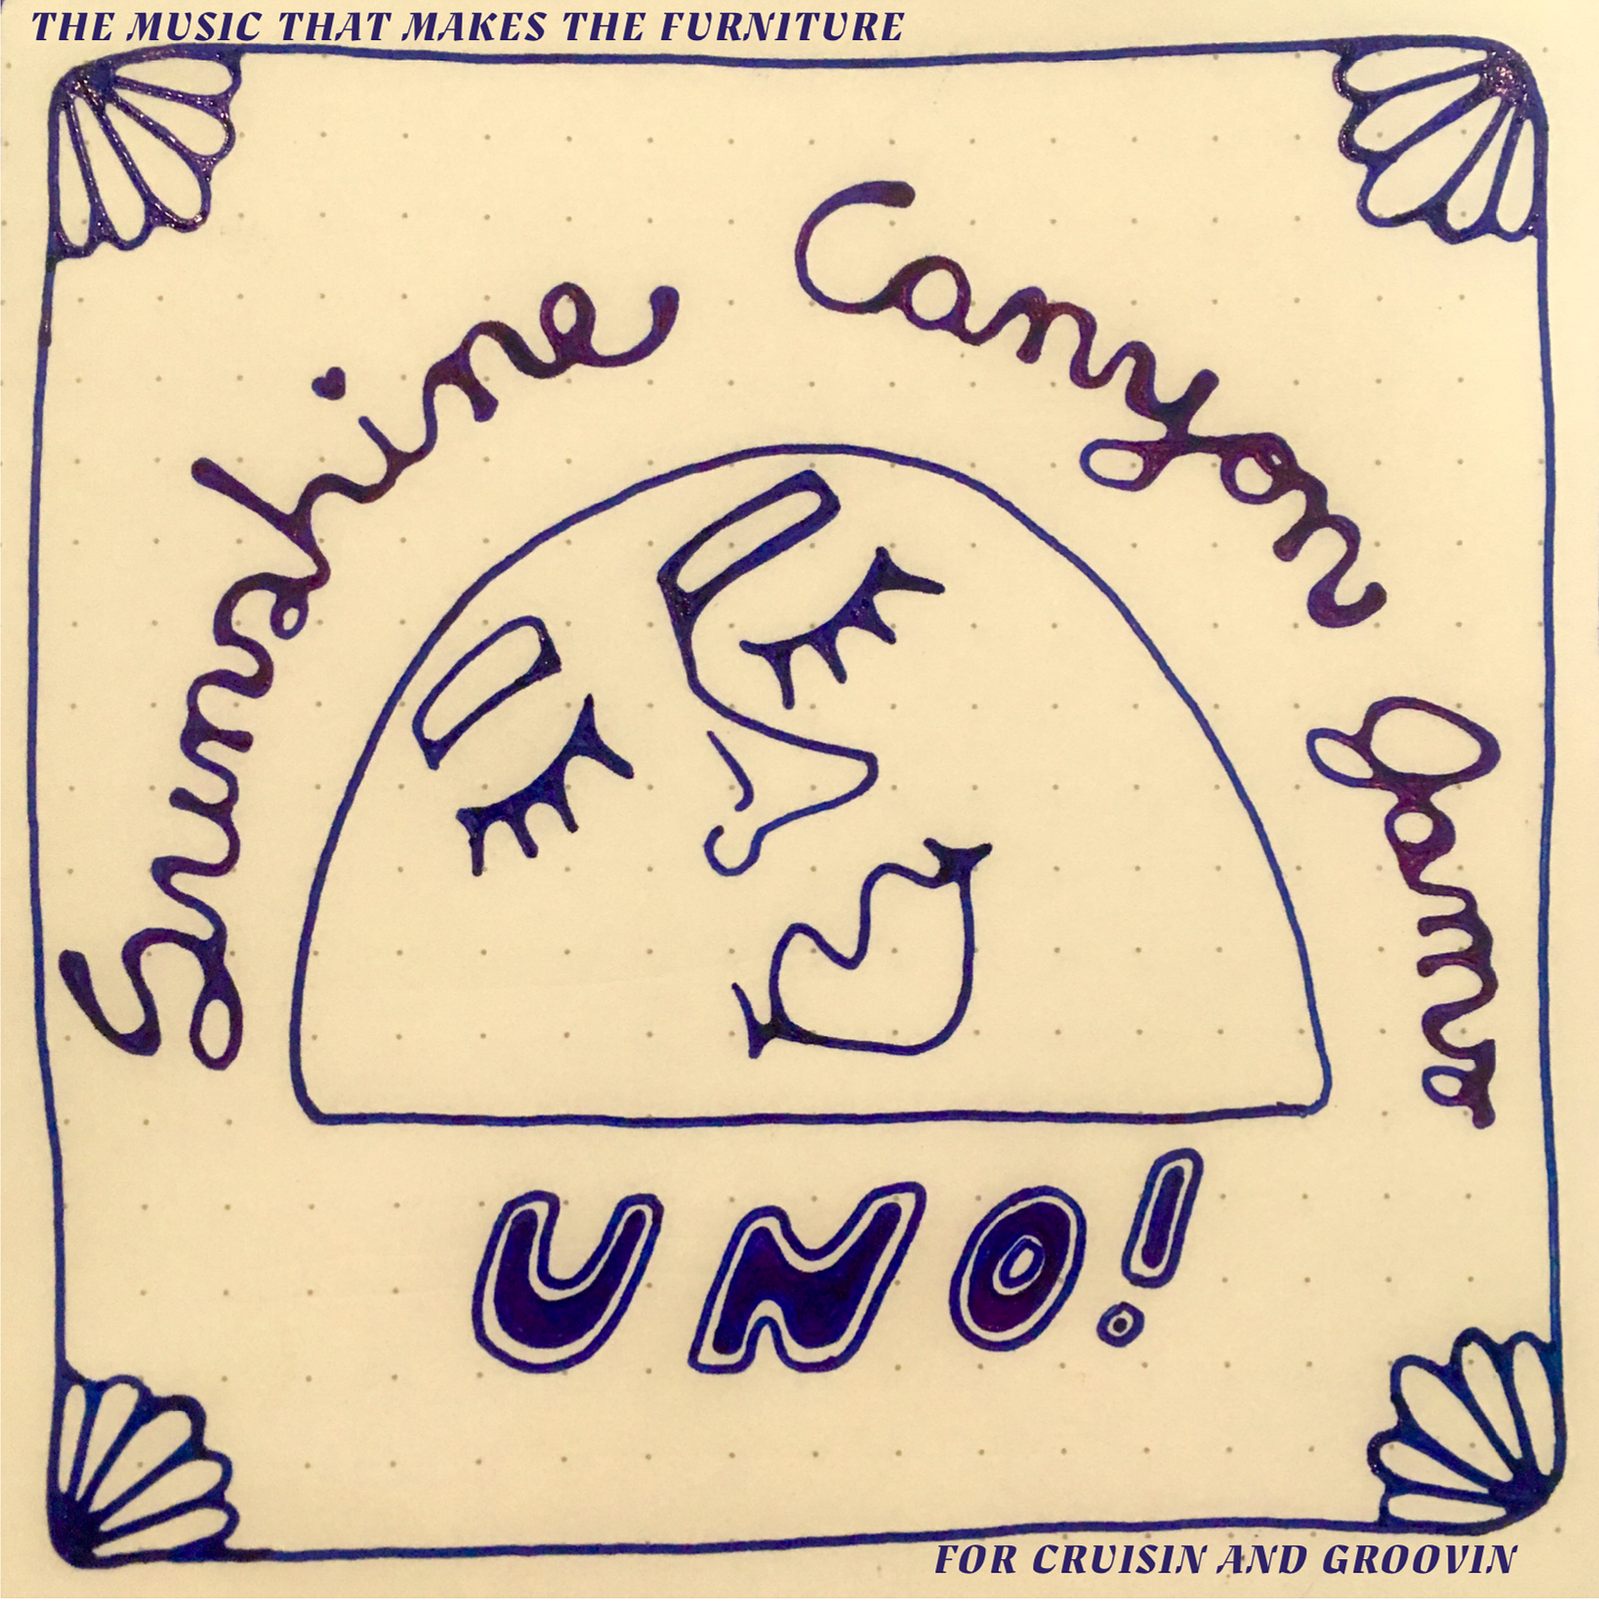 THE MUSIC THAT MAKES THE FURNITURE
Sunshine Canyon Jams
UNO!
FOR CRUISIN AND GROOVIN